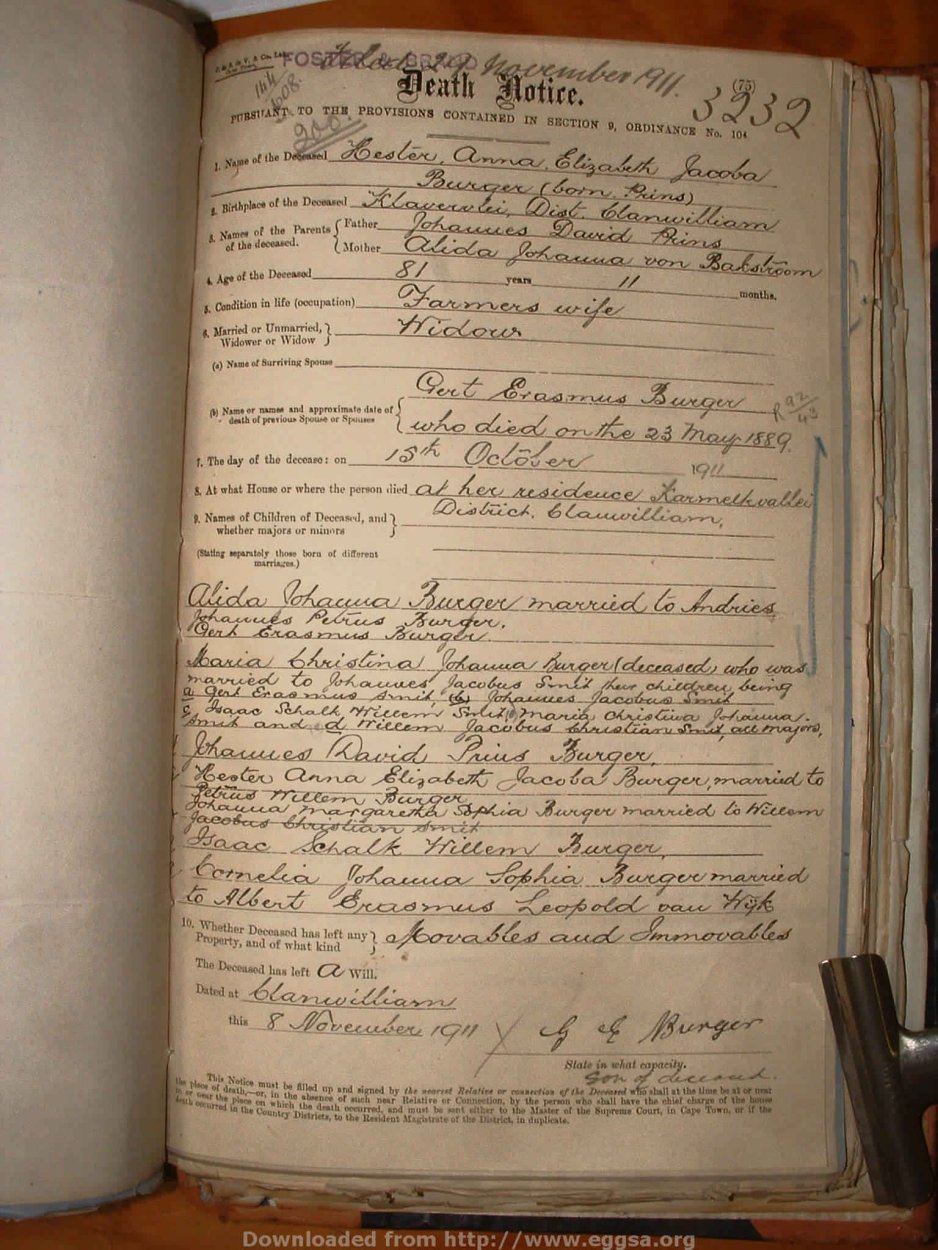 FOSTER & BRAND
Filed 29 November 1911.
(75)
3232
Death Notice.
PURSUANT TO THE PROVISIONS CONTAINED IN SECTION 9, ORDINANCE No. 104
200
1. Name of the Deceased Hester, Anna, Elizabeth Jacoba
Burger (born Prins)
2. Birthplace of the Deceased Klavervlei, Dist. Clanwilliam
3. Names of the Parents of the deceased. Father Johannes David Prins
Mother Alida Johanna von Bakstroom
4. Age of the Deceased 81 years 11 months.
5. Condition in life (occupation) Farmers wife
6. Married or Unmarried, Widower or Widow Widow
(a) Name of Surviving Spouse
Gert Erasmus Burger
(b) Name or names and approximate date of death of previous Spouse or Spouses
who died on the 23 May 1889.
7. The day of the decease: on 15th October 1911
8. At what House or where the person died at her residence Karmelkvallei
District, Clanwilliam,
9. Names of Children of Deceased, and whether majors or minors
(Stating separately those born of different marriages.)
Alida Johanna Burger married to Andries
Johannes Petrus Burger.
Gert Erasmus Burger.
Maria Christina Johanna Burger (deceased) who was
married to Johannes Jacobus Smit their children being
a Gert Erasmus Smit, (b) Johannes Jacobus Smit
c, Isaac Schalk Willem Smit, Maria Christina Johanna
Smit and d Willem Jacobus Christian Smit, all majors,
Johannes David Prins Burger,
Hester Anna Elizabeth Jacoba Burger, married to
Petrus Willem Burger
Johanna Margaretha Sophia Burger married to Willem
Jacobus Christian Smit
Isaac Schalk Willem Burger,
Cornelia Johanna Sophia Burger married
to Albert Erasmus Leopold van Wyk
10. Whether Deceased has left any Property, and of what kind Movables and Immovables
The Deceased has left A Will.
Dated at Clanwilliam
this 8 November 1911 X G E Burger
State in what capacity.
Son of deceased.
This Notice must be filled up and signed by the nearest Relative or connection of the Deceased who shall at the time be at or near
the place of death,—or, in the absence of such near Relative or Connection, by the person who shall have the chief charge of the house
in or near the place on which the death occurred, and must be sent either to the Master of the Supreme Court, in Cape Town, or if the
death occurred in the Country Districts, to the Resident Magistrate of the District, in duplicate.
Downloaded from http://www.eggsa.org